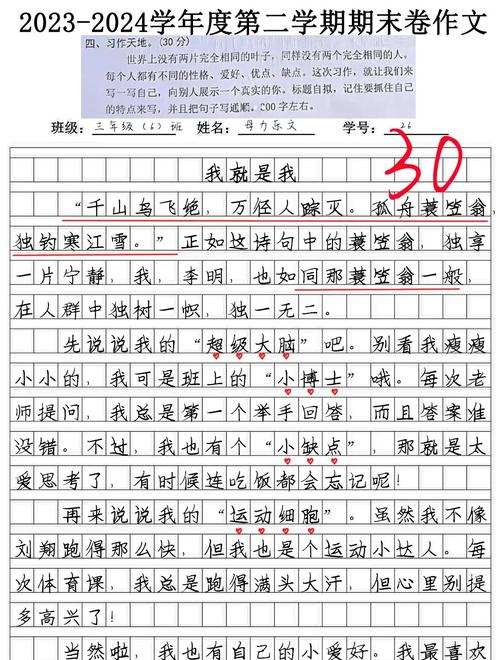 2023-2024学年度第二学期期末卷作文
四、习作天地。(30分)
世界上没有两片完全相同的叶子，同样没有两个完全相同的人。
每个人都有不同的性格、爱好、优点、缺点。这次习作，就让我们来
写一写自己，向别人展示一个真实的你。标题自拟，记住要抓住自己
的特点来写，并且把句子写通顺。200字左右。
班级：三年级（6）班 姓名：母力乐文 学号：26
30
我就是我
“千山鸟飞绝，万径人踪灭。孤舟蓑笠翁，
独钓寒江雪。”正如这诗句中的蓑笠翁，独享
一片宁静，我，李明，也如同那蓑笠翁一般，
在人群中独树一帜，独一无二。
先说说我的“超级大脑”吧。别看我瘦瘦
小小的，我可是班上的“小博士”哦。每次老
师提问，我总是第一个举手回答，而且答案准
没错。不过，我也有个“小缺点”，那就是太
爱思考了，有时候连吃饭都会忘记呢！
再来说说我的“运动细胞”。虽然我不像
刘翔跑得那么快，但我也是个运动小达人。每
次体育课，我总是跑得满头大汗，但心里别提
多高兴了！
当然啦，我也有自己的小爱好。我最喜欢